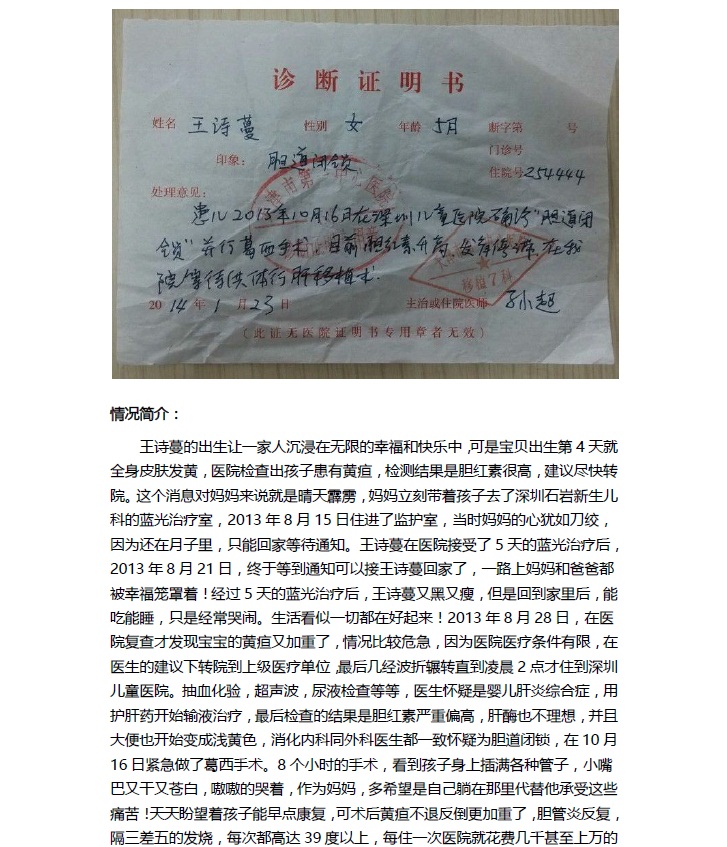 诊断证明书
姓名 王诗蔓 性别 女 年龄 5月 断字第 号
门诊号
印象： 胆道闭锁 住院号 254444
处理意见：
患儿2013年10月16日在深圳儿童医院确诊“胆道闭
锁”并行葛西手术。目前胆红素升高 发育停滞 在我
院等待供体行肝移植术.
2014年1月23日 主治或住院医师 孙超
（此证无医院证明书专用章者无效）
情况简介：
王诗蔓的出生让一家人沉浸在无限的幸福和快乐中,可是宝贝出生第4天就
全身皮肤发黄，医院检查出孩子患有黄疸，检测结果是胆红素很高，建议尽快转
院。这个消息对妈妈来说就是晴天霹雳，妈妈立刻带着孩子去了深圳石岩新生儿
科的蓝光治疗室，2013年8月15日住进了监护室，当时妈妈的心犹如刀绞，
因为还在月子里，只能回家等待通知。王诗蔓在医院接受了5天的蓝光治疗后，
2013年8月21日，终于等到通知可以接王诗蔓回家了，一路上妈妈和爸爸都
被幸福笼罩着！经过5天的蓝光治疗后，王诗蔓又黑又瘦，但是回到家里后，能
吃能睡，只是经常哭闹。生活看似一切都在好起来！2013年8月28日，在医
院复查才发现宝宝的黄疸又加重了，情况比较危急，因为医院医疗条件有限，在
医生的建议下转院到上级医疗单位,最后几经波折辗转直到凌晨2点才住到深圳
儿童医院。抽血化验，超声波，尿液检查等等，医生怀疑是婴儿肝炎综合症，用
护肝药开始输液治疗，最后检查的结果是胆红素严重偏高，肝酶也不理想，并且
大便也开始变成浅黄色，消化内科同外科医生都一致怀疑为胆道闭锁，在10月
16日紧急做了葛西手术。8个小时的手术，看到孩子身上插满各种管子，小嘴
巴又干又苍白，嗷嗷的哭着，作为妈妈，多希望是自己躺在那里代替他承受这些
痛苦！天天盼望着孩子能早点康复，可术后黄疸不退反倒更加重了，胆管炎反复，
隔三差五的发烧，每次都高达39度以上，每住一次医院就花费几千甚至上万的